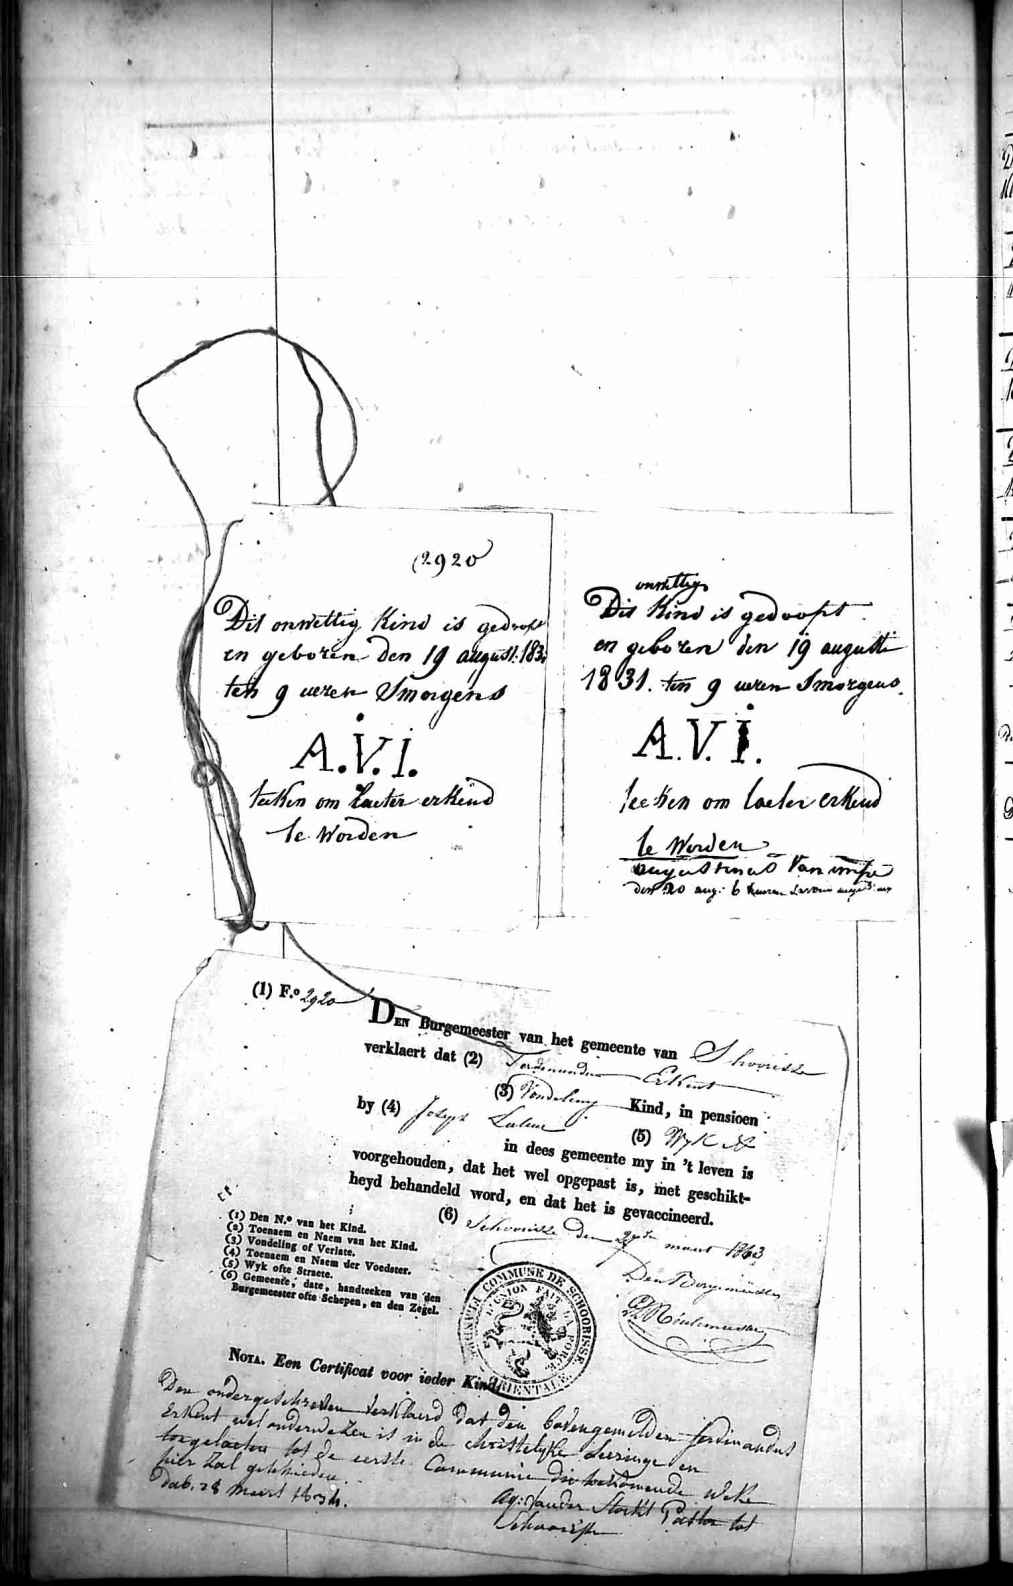 2920
Dit onwettig Kind is gedoopt
en geboren den 19 august. 183
ten 9 ueren Smorgens
A.V.I.
teeken om Laeter erkend
te Worden
onwettig
Dit Kind is gedoopt
en geboren den 19 augusti
1831. ten 9 ueren Smorgens.
A.V.I.
teeken om laeter erkend
te Worden
augustinus Van impe
den 20 aug: 6
(1) F.º 2920
DEN Burgemeester van het gemeente van Schoorisse
verklaert dat (2) Ferdinandus Erkent
(3) Vondeling Kind, in pensioen
by (4) Joseph
(5) Wyk
in dees gemeente my in 't leven is
voorgehouden, dat het wel opgepast is, met geschikt-
heyd behandeld word, en dat het is gevaccineerd.
(6) Schoorisse den maert 1843
Den Borgemeester
(1) Den N.º van het Kind.
(2) Toenaem en Naem van het Kind.
(3) Vondeling of Verlate.
(4) Toenaem en Naem der Voedster.
(5) Wyk ofte Straete.
(6) Gemeente, date, handteeken van den
Burgemeester ofte Schepen, en den Zegel.
COMMUNE DE SCHOORISSE.
L'UNION FAIT LA FORCE
ORIENTALE.
NOTA. Een Certificat voor ieder Kind.
Den ondergeschreven Verklaerd dat den bovengemelden ferdinandus
Erkent wel onderwezen is in de christelyke Leeringe en
toegelaeten tot de eerste Communie die toekomende Weke
hier Zal geschieden.
Dab. 28 Meert
vander Pastor tot
Schoorisse